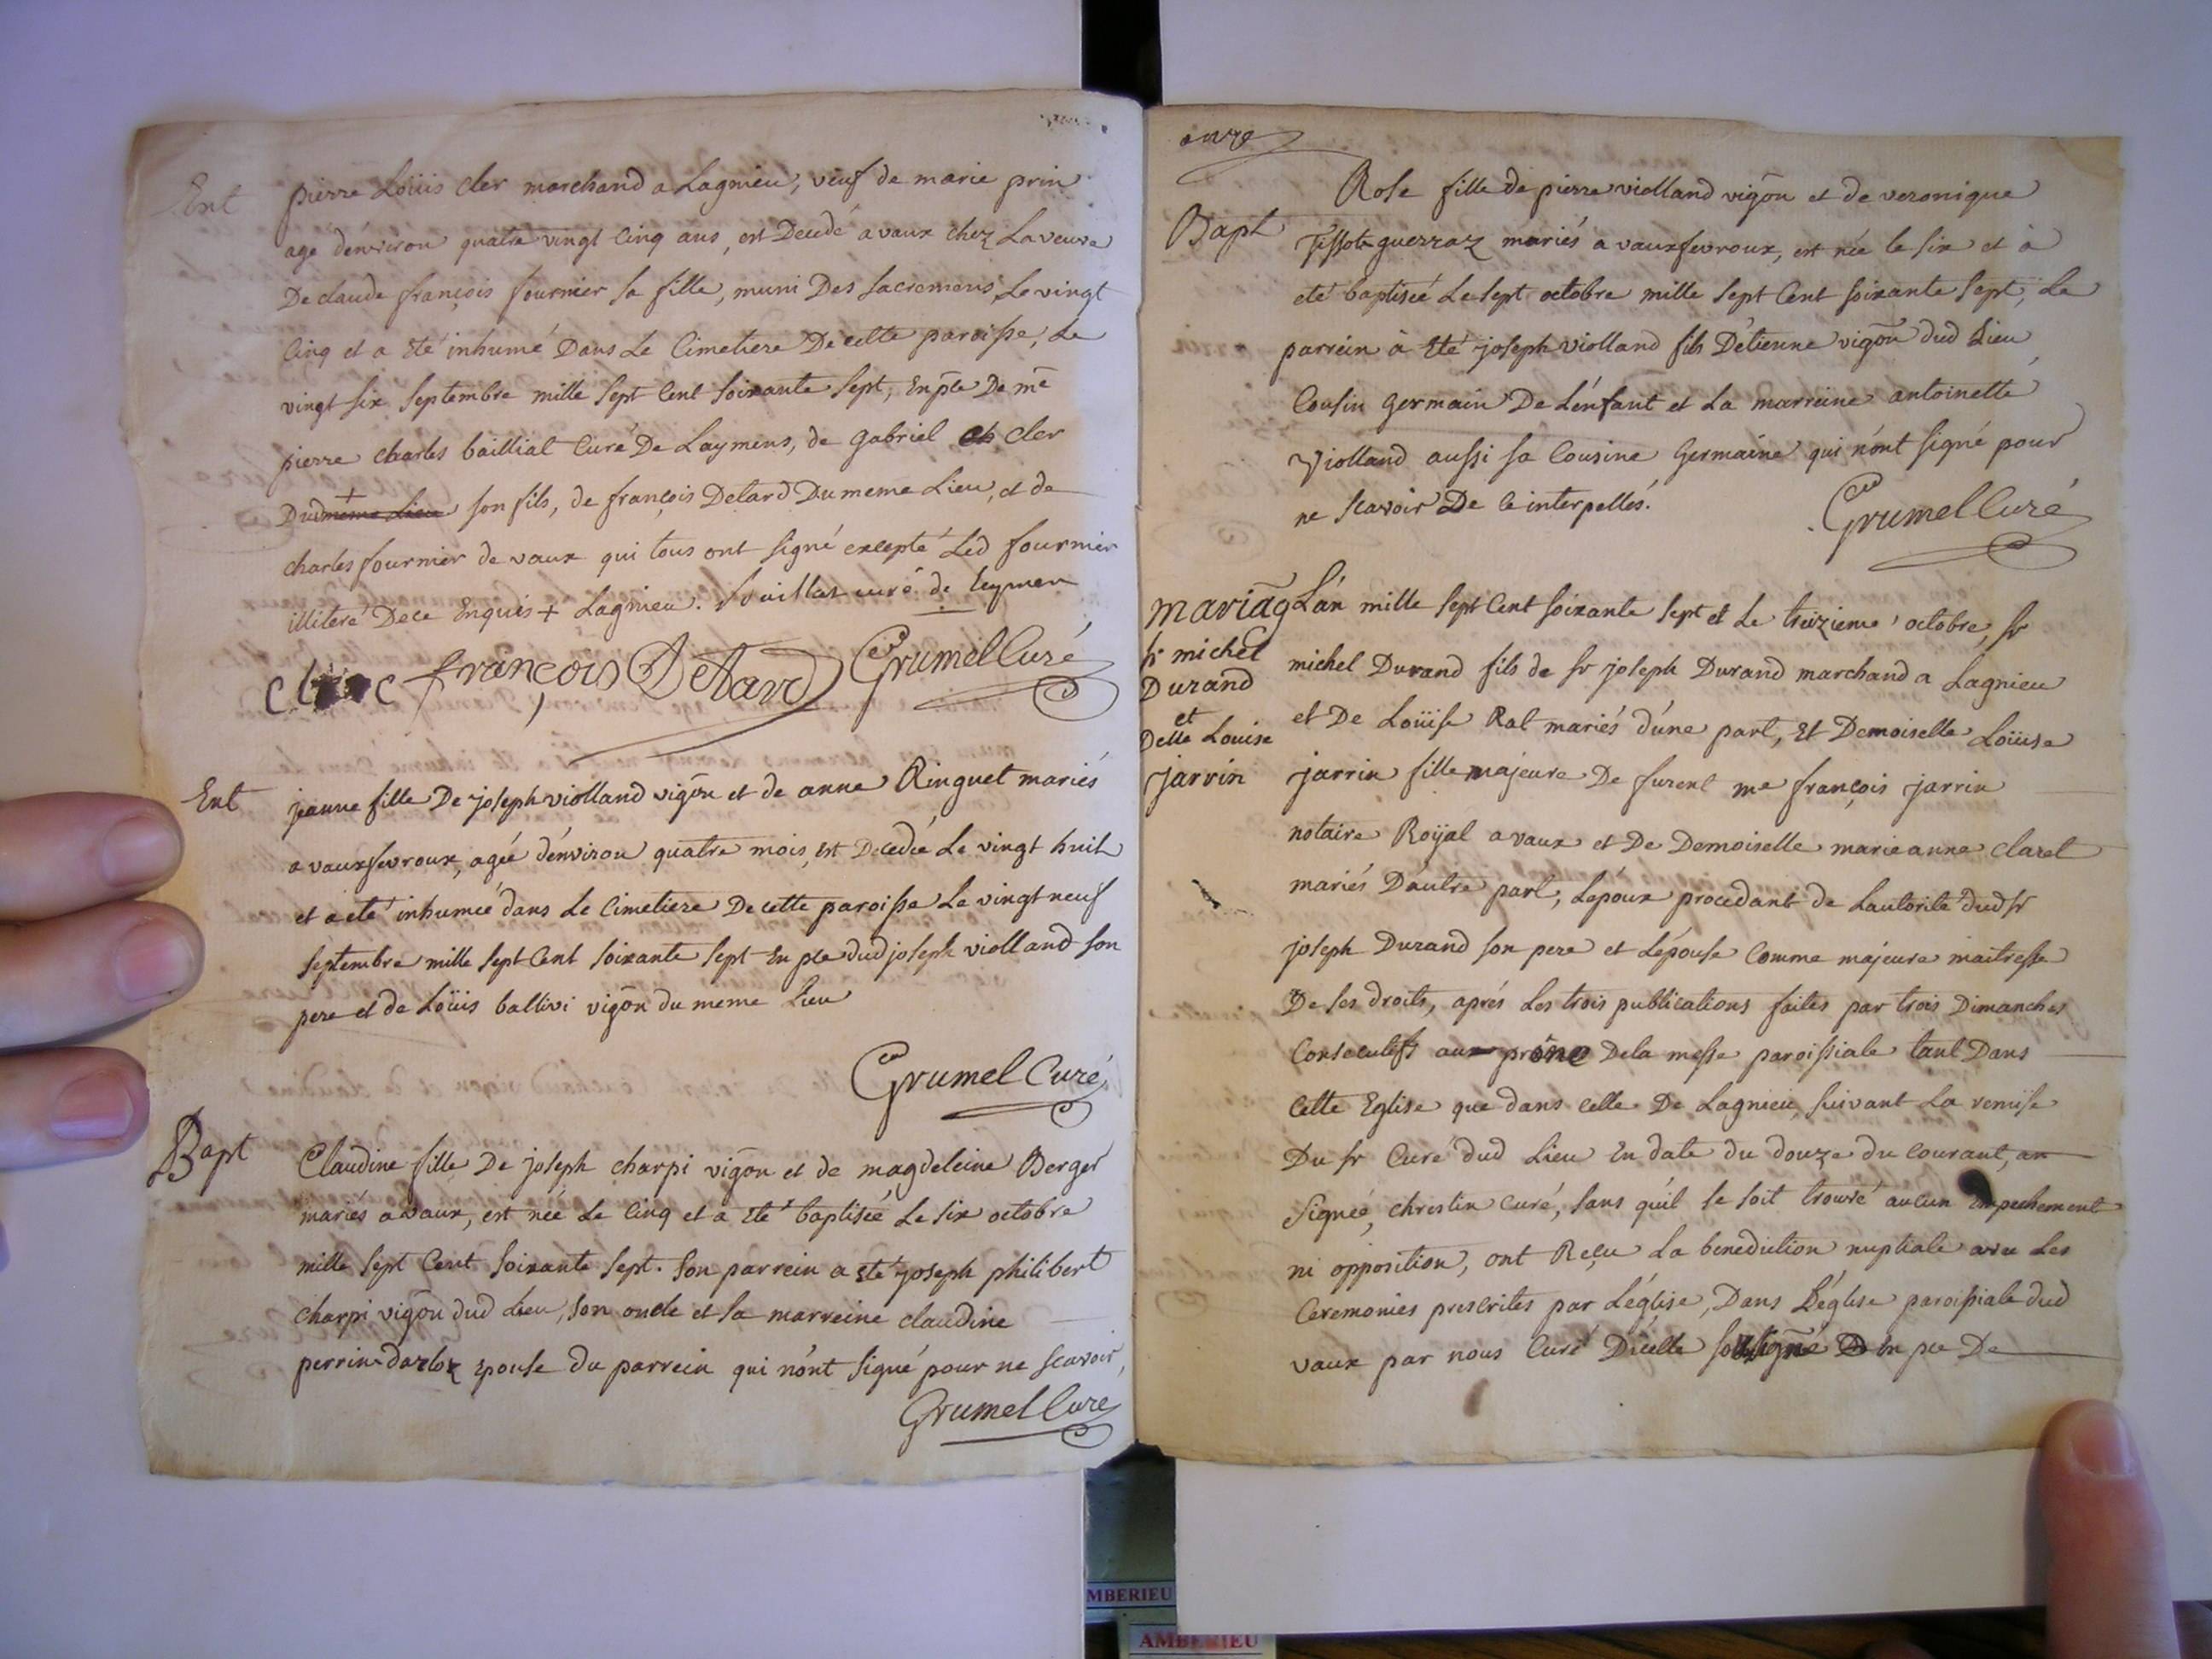 Ent
pierre Loüis cler marchand a Lagnieu, veuf de marie prin
agé d'environ quatre vingt cinq ans, est Decedé a vaux chez La veuve
De claude françois fournier sa fille, muni Des sacremens, Le vingt
cinq et a eté inhumé Dans Le Cimetiere De cette paroisse, Le
vingt six septembre mille sept cent soixante sept, En pce De me
pierre charles bailliat curé De Laymens, de gabriel cler
Dud + meme Lieu son fils, de françois Detard Du meme Lieu, et de
charles fournier de vaux qui tous ont signé excepté Led fournier
illiteré De ce Enquis + Lagnieu. curé de Leymen
françois Detard Grumel Curé
Ent
jeanne fille De joseph violland vigõn et de anne Ringuet mariés
a vauxfevroux, agée d'environ quatre mois, est Decedée Le vingt huit
et a eté inhumée dans Le Cimetiere De cette paroisse Le vingt neuf
septembre mille sept cent soixante sept En pce dud joseph violland son
pere et de Loüis ballivi vigõn du meme Lieu
Grumel Curé
Bapt
Claudine fille De joseph charpi vigõn et de magdeleine Berger
mariés a vaux, est née Le cinq et a eté baptisée Le six octobre
mille sept Cent soixante sept. son parrein a eté joseph philibert
charpi vigõn dud Lieu, son oncle et sa marreine claudine
perrin-darloz epouse du parrein qui n'ont signé pour ne scavoir,
Grumel Curé
onze
Bapt
Rose fille de pierre violland vigõn et de veronique
Tissot-guerraz mariés a vauxfevroux, est née le six et à
eté baptisée Le sept octobre mille sept cent soixante sept, Le
parrein à eté joseph violland fils D'etienne vigõn dud Lieu
Cousin germain De L'enfant et La marreine antoinette
Violland aussi sa Cousine Germaine qui n'ont signé pour
ne scavoir De ce interpellés.
Grumel Curé
mariag
sr michel
Durand
et
Delle Louise
jarrin
L'an mille sept cent soixante sept et Le treizieme octobre, sr
michel Durand fils de sr joseph Durand marchand a Lagnieu
et De Loüise Rat mariés d'une part, Et Demoiselle Loüise
jarrin fille majeure De furent me françois jarrin
notaire Roÿal a vaux et De Demoiselle marie anne claret
mariés D'autre part, L'epoux procedant de L'autorité dud sr
joseph Durand son pere et L'epouse Comme majeure maitresse
De ses droits, aprés Les trois publications faites par trois Dimanches
Consecutifs au prône De la messe paroissiale tant Dans
Cette Eglise que dans celle De Lagnieu, suivant La remise
Du sr Curé dud Lieu En date du douze du courant,
signée, chrestin curé, sans qu'il se soit trouvé aucun Empechement
ni opposition, ont Reçu La benediction nuptiale avec Les
Ceremonies prescrites par L'église, Dans L'église paroissiale dud
vaux par nous Curé D'icelle soussigné En pce De
MBERIEU
AMBERIEU